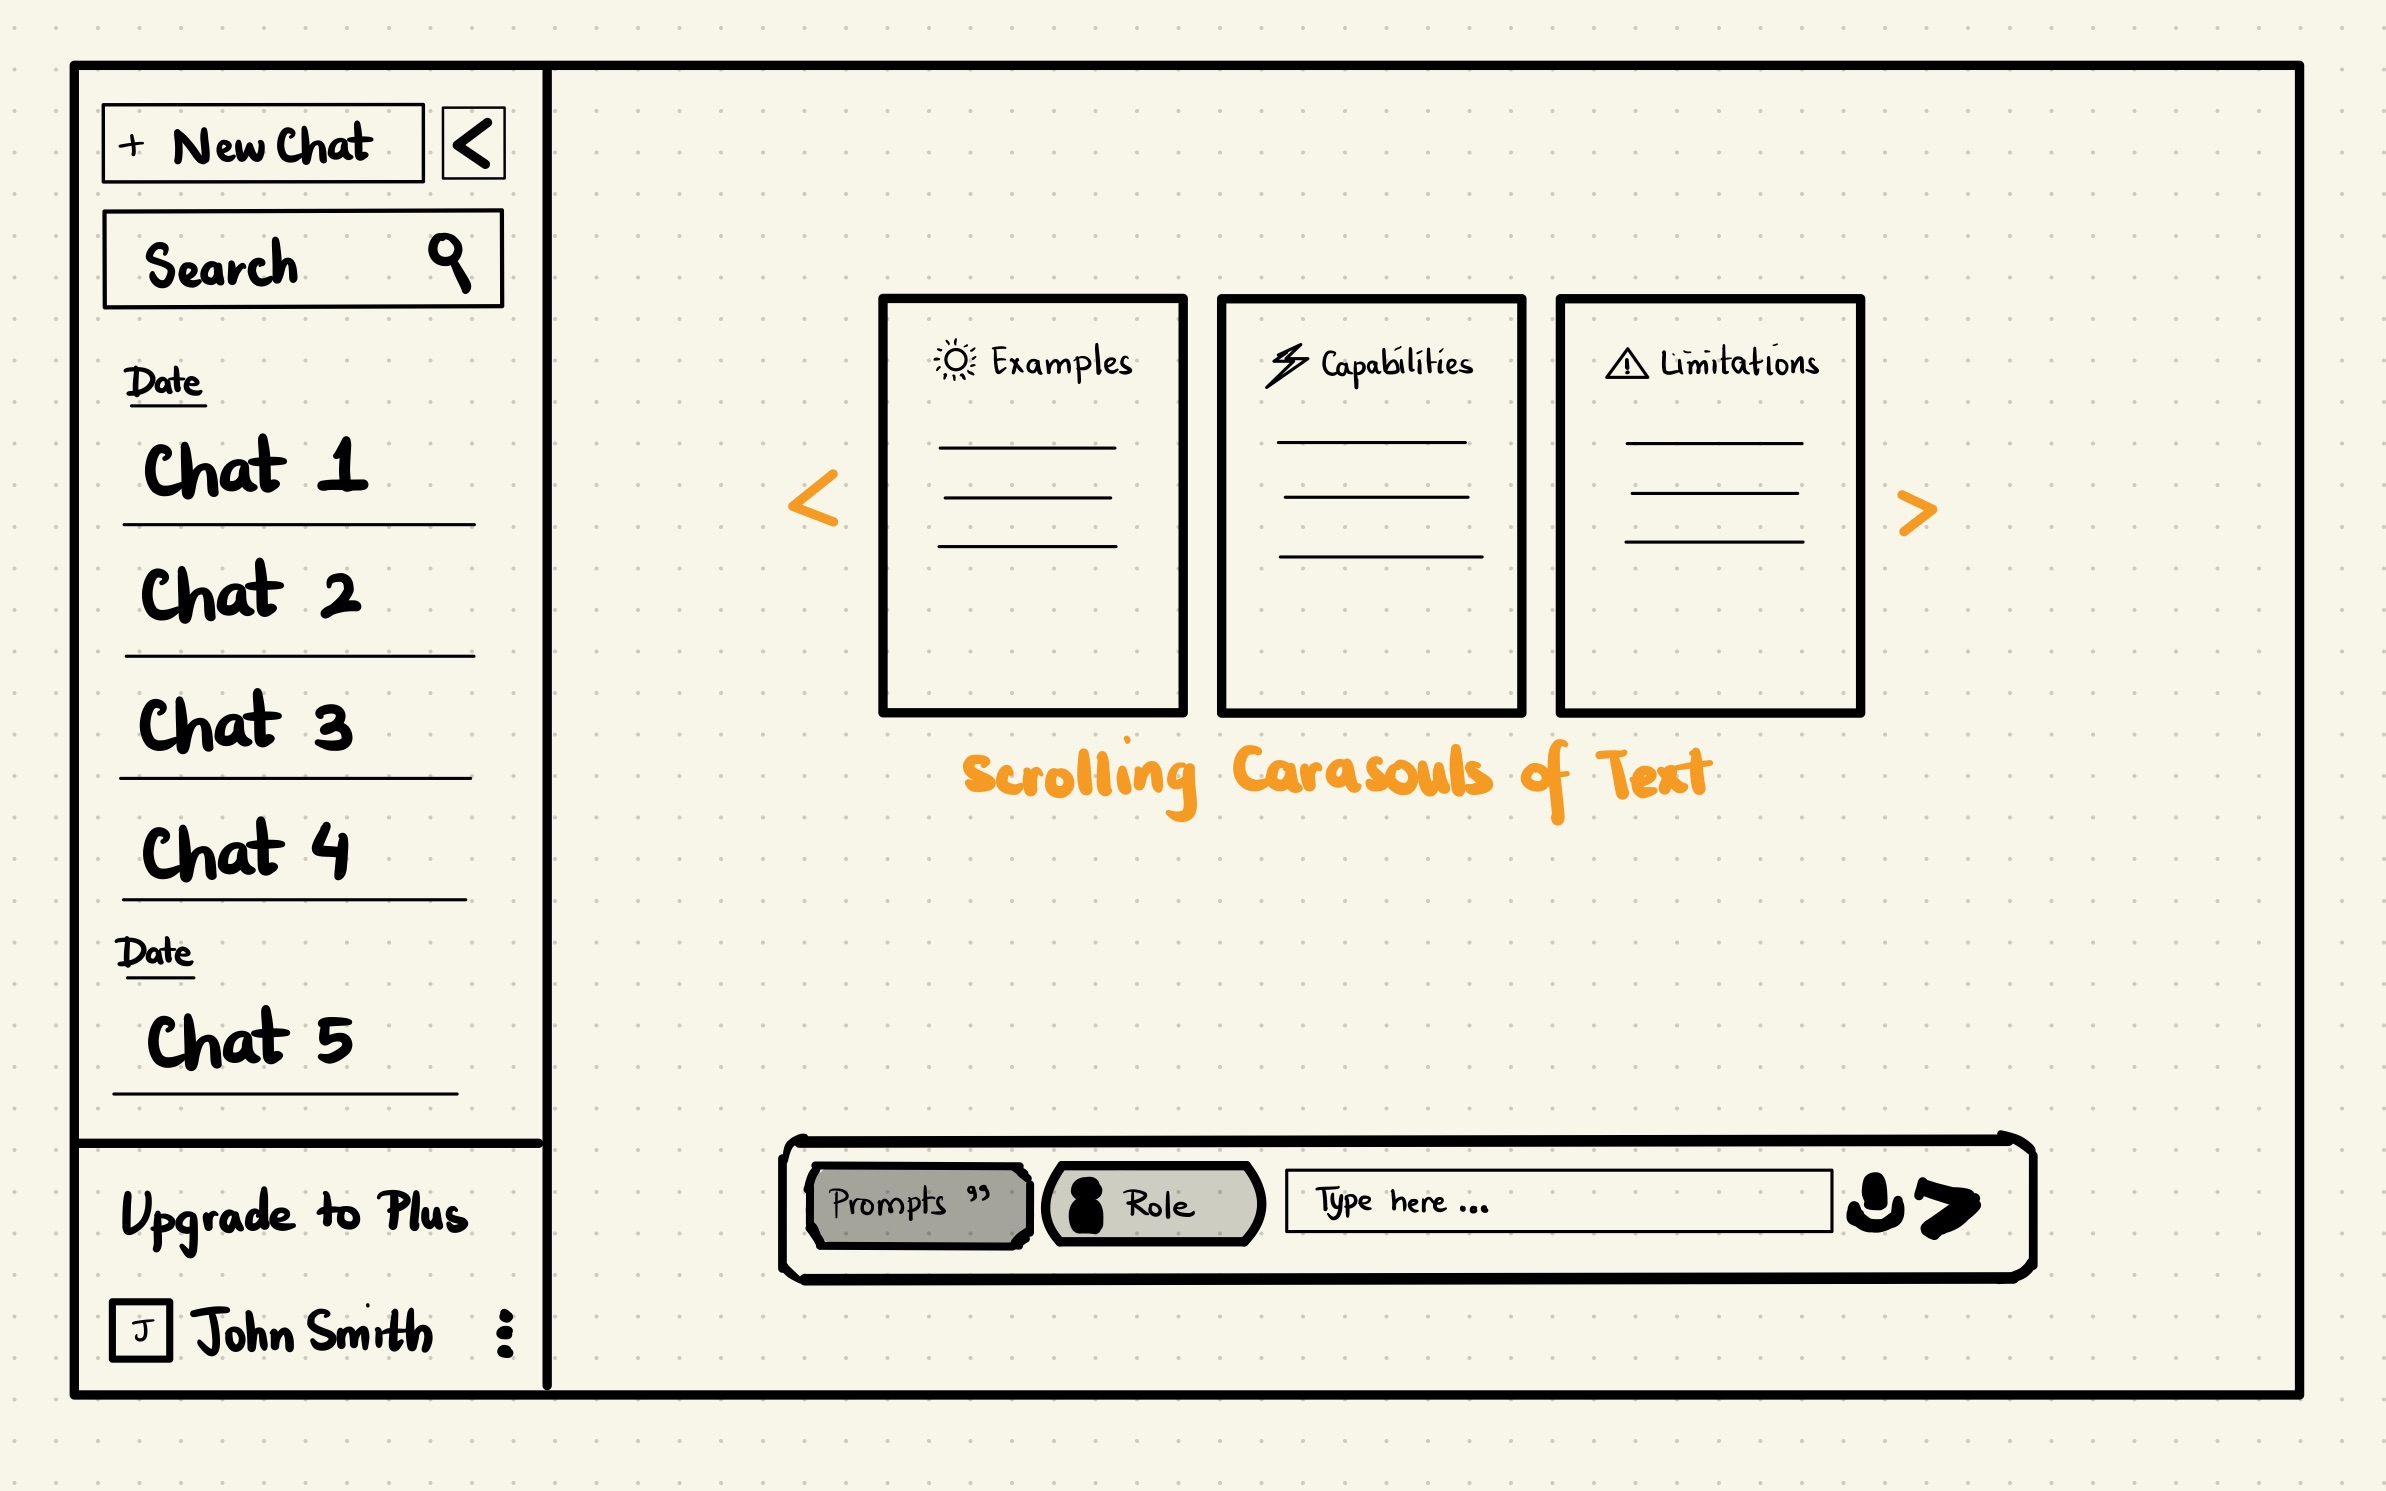 + New Chat <
Search
Date
Chat 1
Chat 2
Chat 3
Chat 4
Date
Chat 5
Upgrade to Plus
J John Smith
Examples
Capabilities
! Limitations
< >
Scrolling Carasouls of Text
Prompts ”
Role
Type here ...